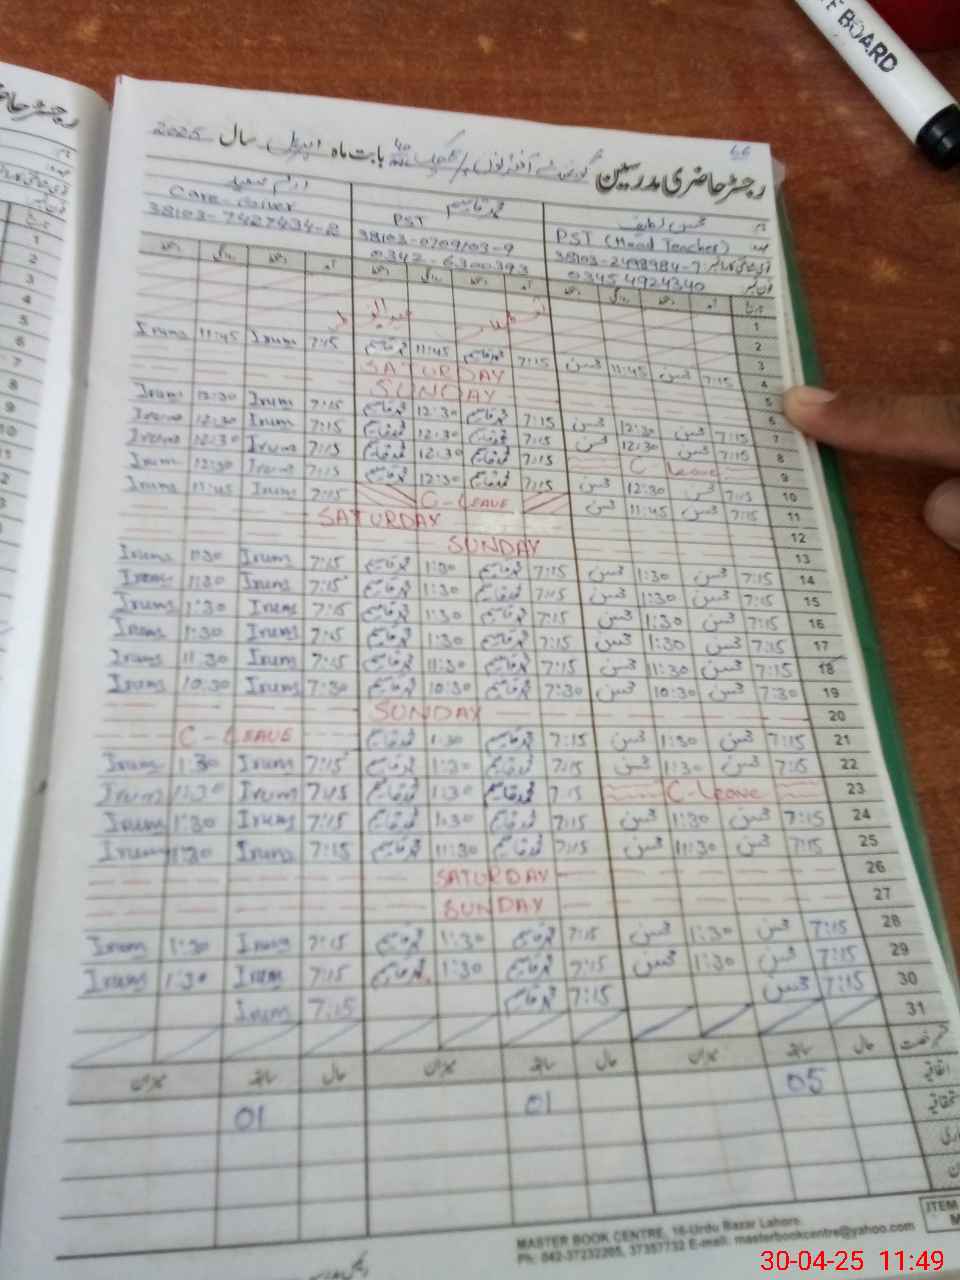 OFF BOARD
66
رجسٹر حاضری مدرسین
بابت ماہ اپریل سال 2025
نام محسن لطیف
محمد قاسم
ارم سعید
عہدہ PST (Head Teacher)
PST
Care-Giver
38103-2498984-7
38103-0709103-9
38103-7427434-2
0345 4924340
0342-6300393
1
2
3
7:15 محسن 11:45 محسن 7:15 محمد قاسم 11:45 محمد قاسم 7:15 Irum 11:45 Irum
4
SATURDAY
5
SUNDAY
6
7 7:15 محسن 12:30 محسن 7:15 محمد قاسم 12:30 محمد قاسم 7:15 Irum 12:30 Irum
8 7:15 محسن 12:30 محسن 7:15 محمد قاسم 12:30 محمد قاسم 7:15 Irum 12:30 Irum
9 C-Leave 7:15 محمد قاسم 12:30 محمد قاسم 7:15 Irum 12:30 Irum
10 7:15 محسن 12:30 محسن 7:15 محمد قاسم 12:30 محمد قاسم 7:15 Irum 12:30 Irum
11 7:15 محسن 11:45 محسن C-LEAVE 7:15 Irum 11:45 Irum
12 SATURDAY
13 SUNDAY
14 7:15 محسن 1:30 محسن 7:15 محمد قاسم 1:30 محمد قاسم 7:15 Irum 1:30 Irum
15 7:15 محسن 1:30 محسن 7:15 محمد قاسم 1:30 محمد قاسم 7:15 Irum 1:30 Irum
16 7:15 محسن 1:30 محسن 7:15 محمد قاسم 1:30 محمد قاسم 7:15 Irum 1:30 Irum
17 7:15 محسن 1:30 محسن 7:15 محمد قاسم 1:30 محمد قاسم 7:15 Irum 1:30 Irum
18 7:15 محسن 11:30 محسن 7:15 محمد قاسم 11:30 محمد قاسم 7:15 Irum 11:30 Irum
19 7:30 محسن 10:30 محسن 7:30 محمد قاسم 10:30 محمد قاسم 7:30 Irum 10:30 Irum
20 SUNDAY
21 7:15 محسن 1:30 محسن 7:15 محمد قاسم 1:30 محمد قاسم C-LEAVE
22 7:15 محسن 1:30 محسن 7:15 محمد قاسم 1:30 محمد قاسم 7:15 Irum 1:30 Irum
23 C-Leave 7:15 محمد قاسم 1:30 محمد قاسم 7:15 Irum 1:30 Irum
24 7:15 محسن 1:30 محسن 7:15 محمد قاسم 1:30 محمد قاسم 7:15 Irum 1:30 Irum
25 7:15 محسن 11:30 محسن 7:15 محمد قاسم 11:30 محمد قاسم 7:15 Irum 11:30 Irum
26 SATURDAY
27 SUNDAY
28 7:15 محسن 1:30 محسن 7:15 محمد قاسم 1:30 محمد قاسم 7:15 Irum 1:30 Irum
29 7:15 محسن 1:30 محسن 7:15 محمد قاسم 1:30 محمد قاسم 7:15 Irum 1:30 Irum
30 7:15 محسن 7:15 محمد قاسم 7:15 Irum
31
حال سابقہ میزان حال سابقہ میزان حال سابقہ میزان
اتفاقیہ 05 01 01
ITEM
MASTER BOOK CENTRE, 16-Urdu Bazar Lahore.
Ph: 042-37232205, 37357732 E-mail: masterbookcentre@yahoo.com
30-04-25 11:49